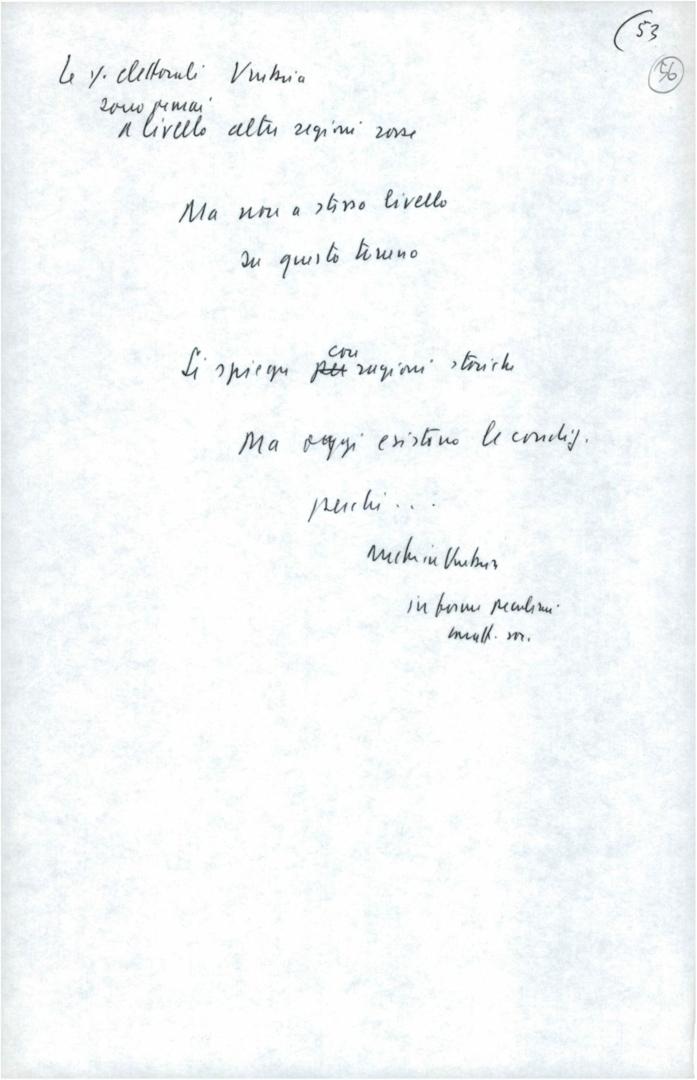 53
56
Le % elettorali Umbria
sono ormai
a livello altre regioni rosse
Ma non a stesso livello
su questo terreno
Si spiega per con ragioni storiche
Ma oggi esistono le condiz.
perché...
anche in Umbria
in forme peculiari